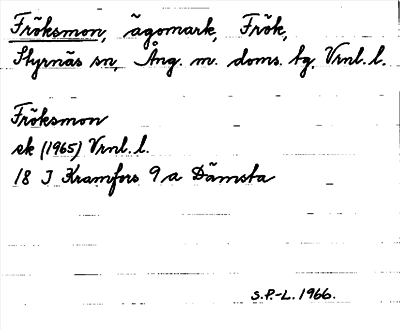 Fröksmon, ägomark, Frök,
Styrnäs sn, Ång. m. doms. tg, Vrnl. l.
Fröksmon
ek (1965) Vrnl. l.
18 J Kramfors 9 a Dämsta
S.P.-L. 1966.